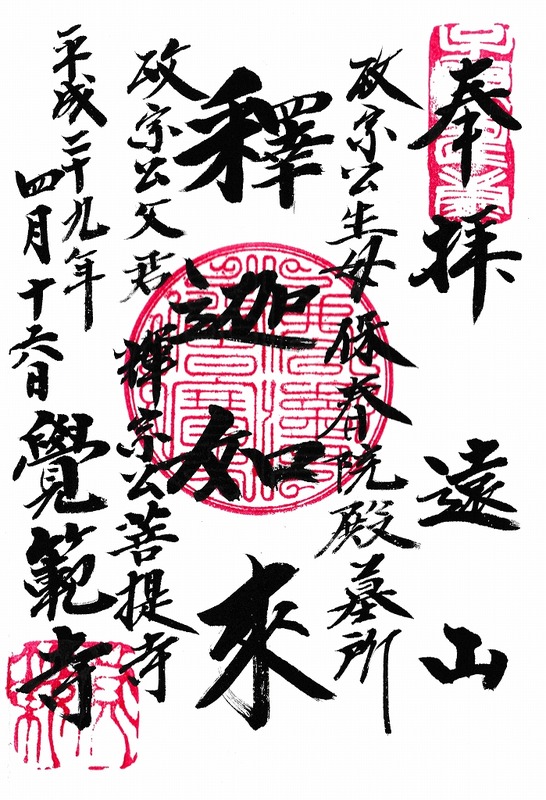 奉拝 遠山
政宗公生母 保春院殿墓所
釋迦如來
政宗公父君 輝宗公菩提寺
平成二十九年
四月十六日 覺範寺